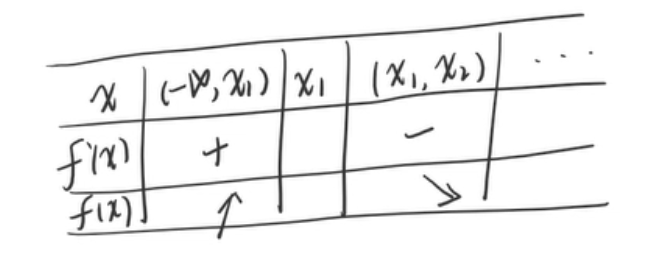 x (-∞, x₁) x₁ (x₁, x₂) ....
f'(x) + -
f(x) ↗ ↘